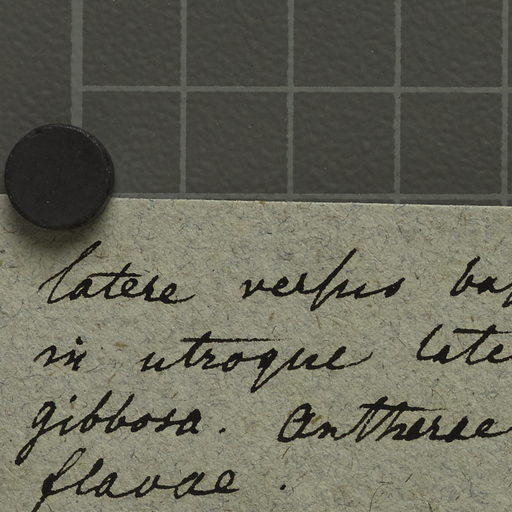 latere versus
in utroque
gibbosa. Antherae
flavae.